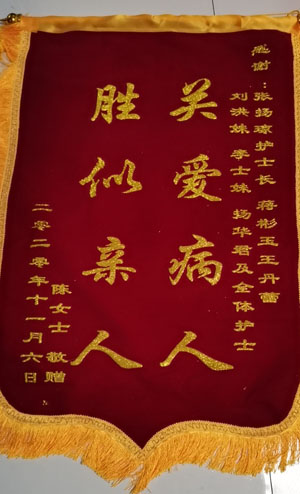 感谢：张扬琼护士长 蒋彬玉 王丹蕾
刘洪姝 李士姝 杨华君及全体护士
关爱病人
胜似亲人
陈女士 敬赠
二零二零年十一月六日